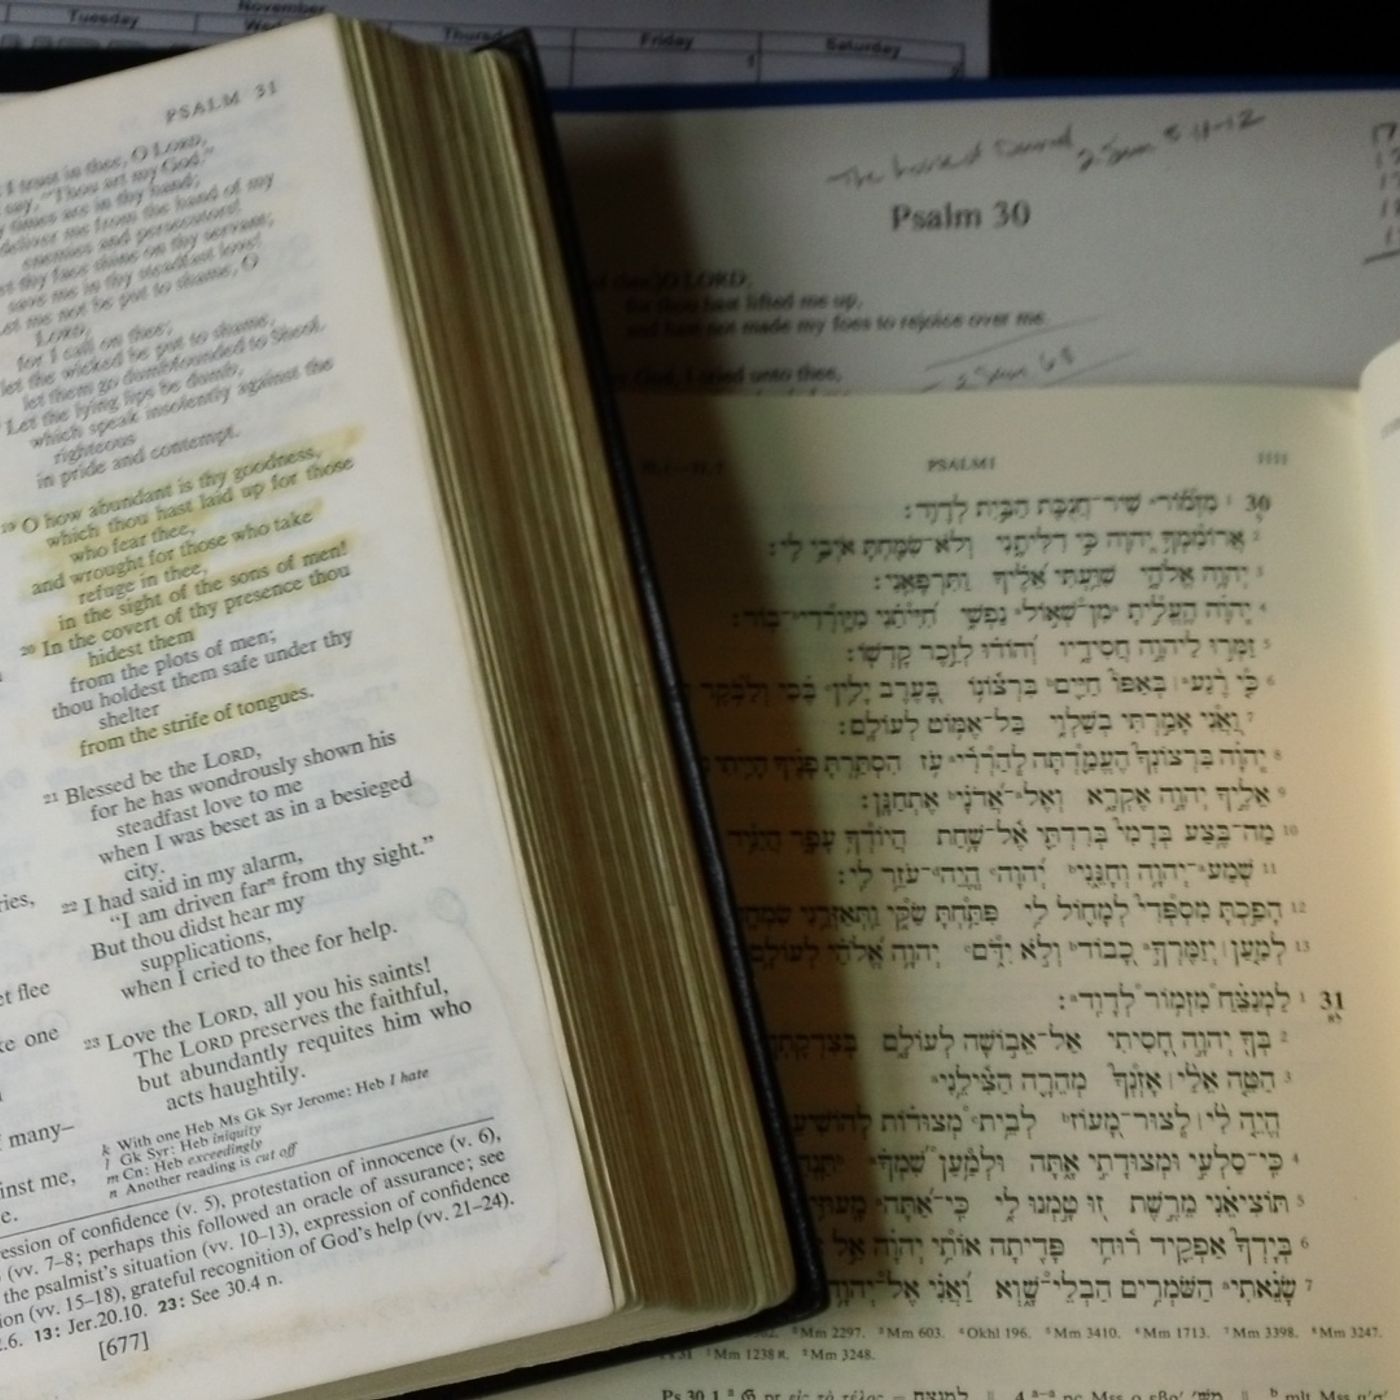 November
Tuesday
Friday
Saturday
1
PSALM 31
I trust in thee, O LORD,
say, "Thou art my God."
times are in thy hand;
deliver me from the hand of my
enemies and persecutors!
thy face shine on thy servant;
save me in thy steadfast love!
Let me not be put to shame, O
LORD,
for I call on thee;
let the wicked be put to shame,
let them go dumbfounded to Sheol.
Let the lying lips be dumb,
which speak insolently against the
righteous
in pride and contempt.
19 O how abundant is thy goodness,
which thou hast laid up for those
who fear thee,
and wrought for those who take
refuge in thee,
in the sight of the sons of men!
20 In the covert of thy presence thou
hidest them
from the plots of men;
thou holdest them safe under thy
shelter
from the strife of tongues.
21 Blessed be the LORD,
for he has wondrously shown his
steadfast love to me
when I was beset as in a besieged
city.
22 I had said in my alarm,
"I am driven farⁿ from thy sight."
But thou didst hear my
supplications,
when I cried to thee for help.
23 Love the LORD, all you his saints!
The LORD preserves the faithful,
but abundantly requites him who
acts haughtily.
k With one Heb Ms Gk Syr Jerome: Heb I hate
l Gk Syr: Heb iniquity
m Cn: Heb exceedingly
n Another reading is cut off
ession of confidence (v. 5), protestation of innocence (v. 6),
(vv. 7–8; perhaps this followed an oracle of assurance; see
the psalmist's situation (vv. 10–13), expression of confidence
ion (vv. 15–18), grateful recognition of God's help (vv. 21–24).
.6. 13: Jer.20.10. 23: See 30.4 n.
[677]
ries,
et flee
ke one
many–
inst me,
e.
2 Sam 5 11-12
Psalm 30
O LORD,
for thou hast lifted me up,
and hast not made my foes to rejoice over me
God, I cried unto thee,
2 Sam 6 8
PSALMI
30 1 מִזְמ֡וֹר שִׁיר־חֲנֻכַּ֖ת הַבַּ֣יִת לְדָוִֽד׃
2 אֲרוֹמִמְךָ֣ יְ֭הוָה כִּ֣י דִלִּיתָ֑נִי וְלֹא־שִׂמַּ֖חְתָּ אֹיְבַ֣י לִֽי׃
3 יְהוָ֥ה אֱלֹהָ֑י שִׁוַּ֥עְתִּי אֵ֝לֶ֗יךָ וַתִּרְפָּאֵֽנִי׃
4 יְֽהוָ֗ה הֶֽעֱלִ֣יתָ מִן־שְׁא֣וֹל נַפְשִׁ֑י חִ֝יִּיתַ֗נִי מִיָּֽורְדִי־בֽוֹר׃
5 זַמְּר֣וּ לַיהוָ֣ה חֲסִידָ֑יו וְ֝הוֹד֗וּ לְזֵ֣כֶר קָדְשֽׁוֹ׃
6 כִּ֤י רֶ֨גַע ׀ בְּאַפּוֹ֮ חַיִּ֪ים בִּרְצ֫וֹנ֥וֹ בָּ֭עֶרֶב יָלִ֥ין בֶּ֗כִי וְלַבֹּ֥קֶר
7 וַ֭אֲנִי אָמַ֣רְתִּי בְשַׁלְוִ֑י בַּל־אֶמּ֥וֹט לְעוֹלָֽם׃
8 יְֽהוָ֗ה בִּרְצוֹנְךָ֮ הֶעֱמַ֪דְתָּה לְֽהַרְרִ֫י עֹ֥ז הִסְתַּ֥רְתָּ פָנֶ֗יךָ הָיִ֥יתִי
9 אֵלֶ֣יךָ יְהוָ֣ה אֶקְרָ֑א וְאֶל־אֲ֝דֹנָ֗י אֶתְחַנָּֽן׃
10 מַה־בֶּ֥צַע בְּדָמִי֮ בְּרִדְתִּ֪י אֶ֫ל־שָׁ֥חַת הֲיוֹדְךָ֥ עָפָ֑ר הֲיַגִּ֥יד
11 שְׁמַע־יְהוָ֥ה וְחָנֵּ֑נִי יְ֝הוָ֗ה הֱ‍ֽיֵה־עֹזֵ֥ר לִֽי׃
12 הָפַ֣כְתָּ מִסְפְּדִי֮ לְמָח֪וֹל לִ֥י פִּתַּ֥חְתָּ שַׂקִּ֑י וַֽתְּאַזְּרֵ֥נִי
13 לְמַ֤עַן ׀ יְזַמֶּרְךָ֣ כָ֭בוֹד וְלֹ֣א יִדֹּ֑ם יְהוָ֥ה אֱ֝לֹהַ֗י לְעוֹלָ֥ם
31 1 לַמְנַצֵּ֗חַ מִזְמ֥וֹר לְדָוִֽד׃
2 בְּךָ֖ יְהוָ֣ה חָ֭סִיתִי אַל־אֵב֣וֹשָׁה לְעוֹלָ֑ם
3 הַטֵּ֤ה אֵלַ֨י ׀ אָזְנְךָ֮ מְהֵרָ֪ה הַצִּ֫ילֵ֥נִי
הֱיֵ֤ה לִ֨י ׀ לְֽצוּר־מָ֭עוֹז לְבֵ֥ית מְצוּד֗וֹת לְהוֹשִׁיעֵֽ
4 כִּֽי־סַלְעִ֣י וּמְצוּדָתִ֣י אָ֑תָּה וּלְמַ֥עַן שִׁ֝מְךָ֗
5 תּוֹצִיאֵ֗נִי מֵרֶ֣שֶׁת ז֭וּ טָ֣מְנוּ לִ֑י כִּֽי־אַ֝תָּ֗ה
6 בְּיָדְךָ֮ אַפְקִ֪יד ר֫וּחִ֥י פָּדִ֖יתָה אוֹתִ֥י יְהוָ֗ה אֵ֣ל
7 שָׂנֵ֗אתִי הַשֹּׁמְרִ֥ים הַבְלֵי־שָׁ֑וְא וַ֝אֲנִ֗י אֶל־יְהוָ֥ה
²Mm 2297. ³Mm 603. ⁴Okhl 196. ⁵Mm 3410. ⁶Mm 1713. ⁷Mm 3398. ⁸Mm 3247.
31 ¹Mm 1238 א. ²Mm 3248.